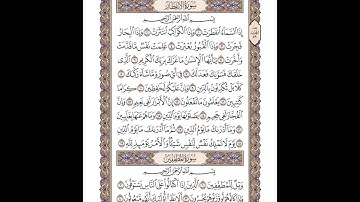 سورة الانفطار
بسم الله الرحمن الرحيم
إذا السماء انفطرت ۝ وإذا الكواكب انتثرت ۝ وإذا البحار
فجرت ۝ وإذا القبور بعثرت ۝ علمت نفس ما قدمت
وأخرت ۝ يا أيها الإنسان ما غرك بربك الكريم ۝ الذي
خلقك فسواك فعدلك ۝ في أي صورة ما شاء ركبك ۝
كلا بل تكذبون بالدين ۝ وإن عليكم لحافظين ۝ كراما
كاتبين ۝ يعلمون ما تفعلون ۝ إن الأبرار لفي نعيم ۝ وإن
الفجار لفي جحيم ۝ يصلونها يوم الدين ۝ وما هم عنها بغائبين ۝
وما أدراك ما يوم الدين ۝ ثم ما أدراك ما يوم الدين ۝
يوم لا تملك نفس لنفس شيئا والأمر يومئذ لله ۝
سورة المطففين
بسم الله الرحمن الرحيم
ويل للمطففين ۝ الذين إذا اكتالوا على الناس يستوفون ۝
وإذا كالوهم أو وزنوهم يخسرون ۝ ألا يظن أولئك أنهم مبعوثون ۝